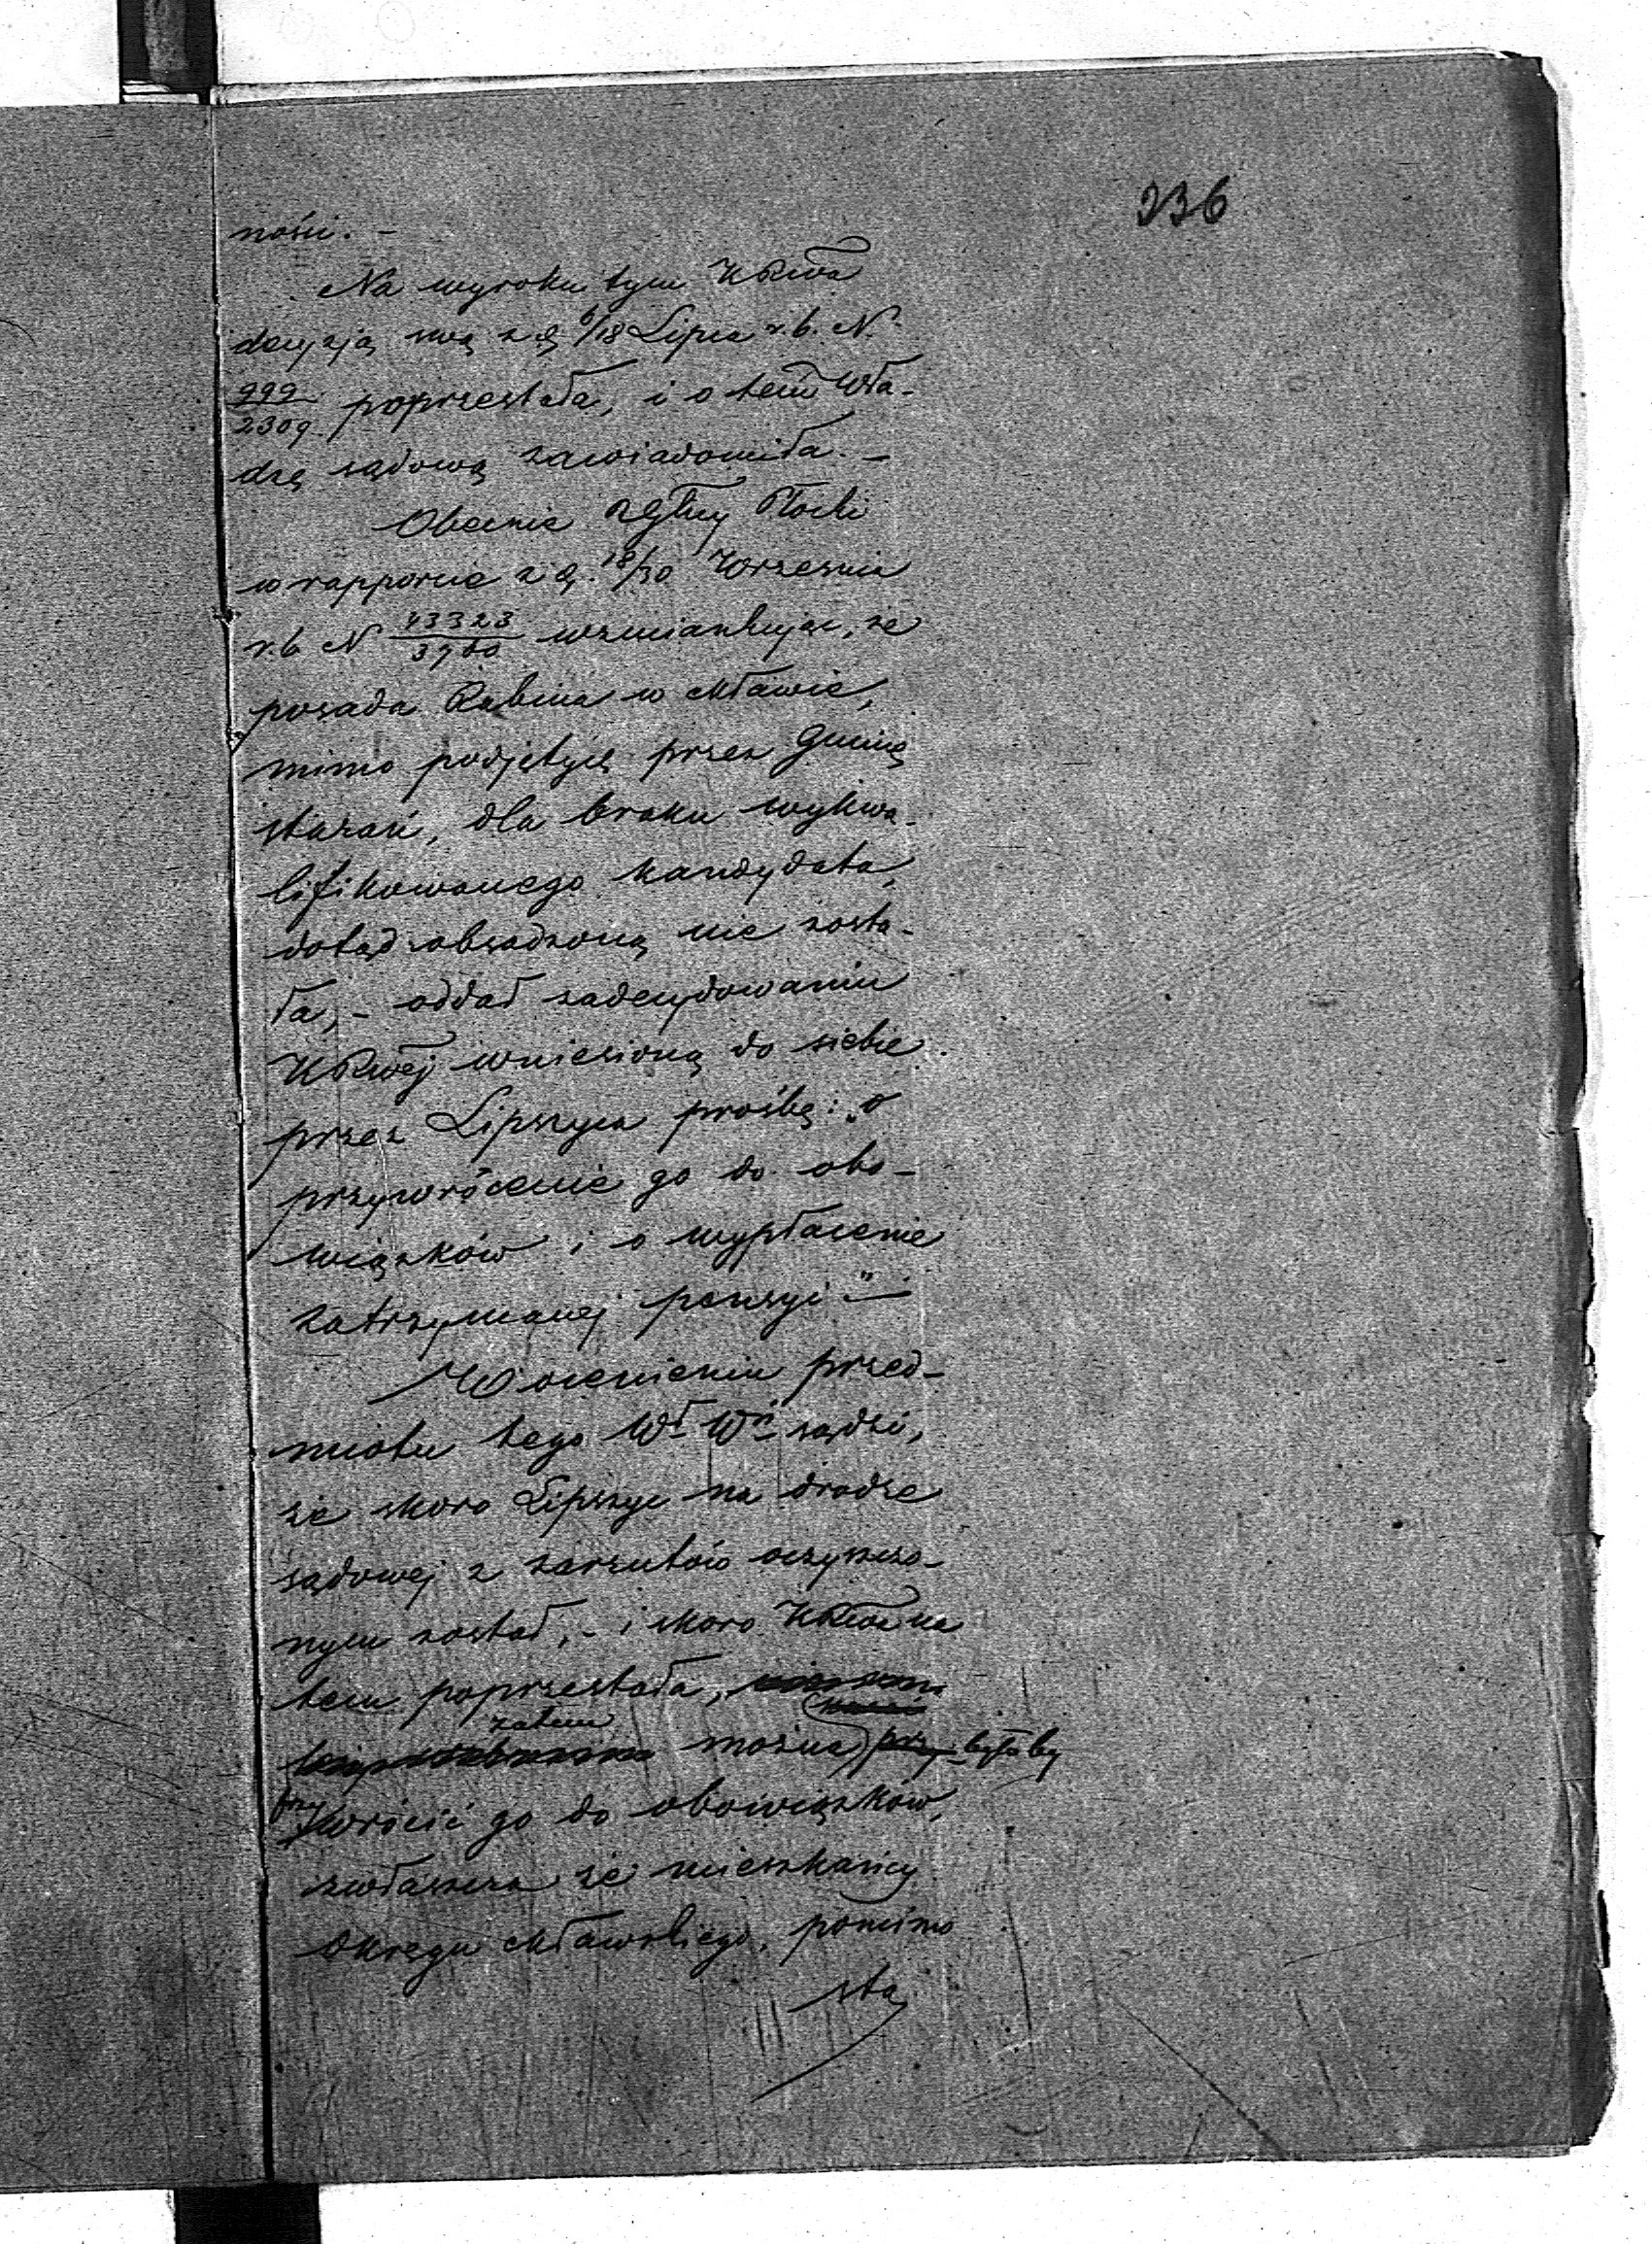 236
ności. -
Na wyroku tym KRwa
decyzją swą z d 6/18 Lipca r. b. N.
999/2309 poprzestała, i o tem Wła-
dzę sądową zawiadomiła. -
Obecnie RGlny Płocki
w rapporcie z d. 18/30 Września
r. b. N 43323/3760 wzmiankując, że
posada Rabina w Mławie,
mimo podjętych przez Gminę
starań, dla braku wykwa-
lifikowanego kandydata,
dotąd obsadzoną nie zosta-
ła, - oddał zadecydowaniu
KRwej wniesioną do siebie
przez Lipszyca prośbę: „o
przywrócenie go do obo-
wiązków i o wypłacenie
zatrzymanej pensyi" -
W ocenieniu przed-
miotu tego Wł Wń sądzi,
że skoro Lipszyc na drodze
sądowej z zarzutów oczyszczo-
nym został, - i skoro KRwa na
tem poprzestała,
zatem
można byłoby
przywrócić go do obowiązków,
zwłaszcza że mieszkańcy
Okręgu Mławskiego, pomimo
sta